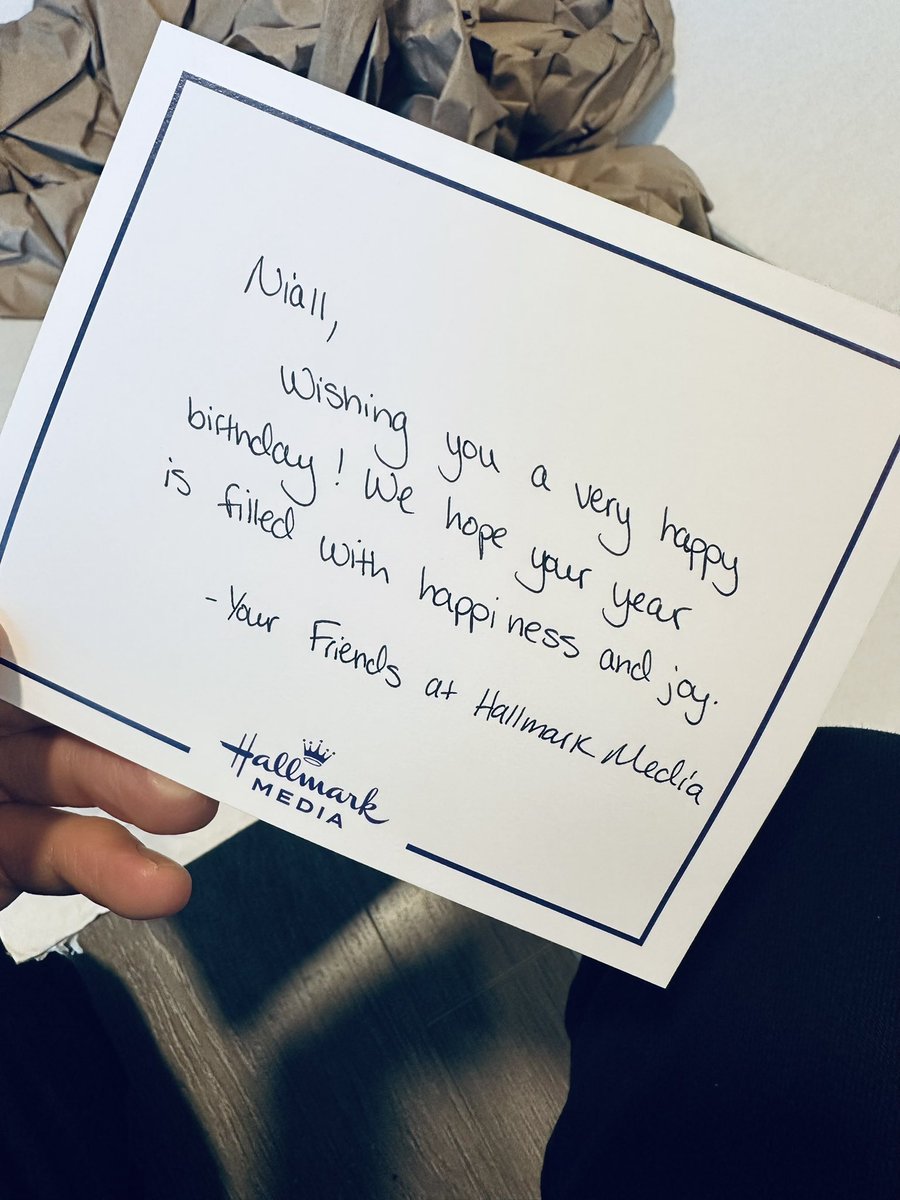 Niall,
Wishing you a very happy
birthday! We hope your year
is filled with happiness and joy.
- Your Friends at Hallmark Media
Hallmark
MEDIA